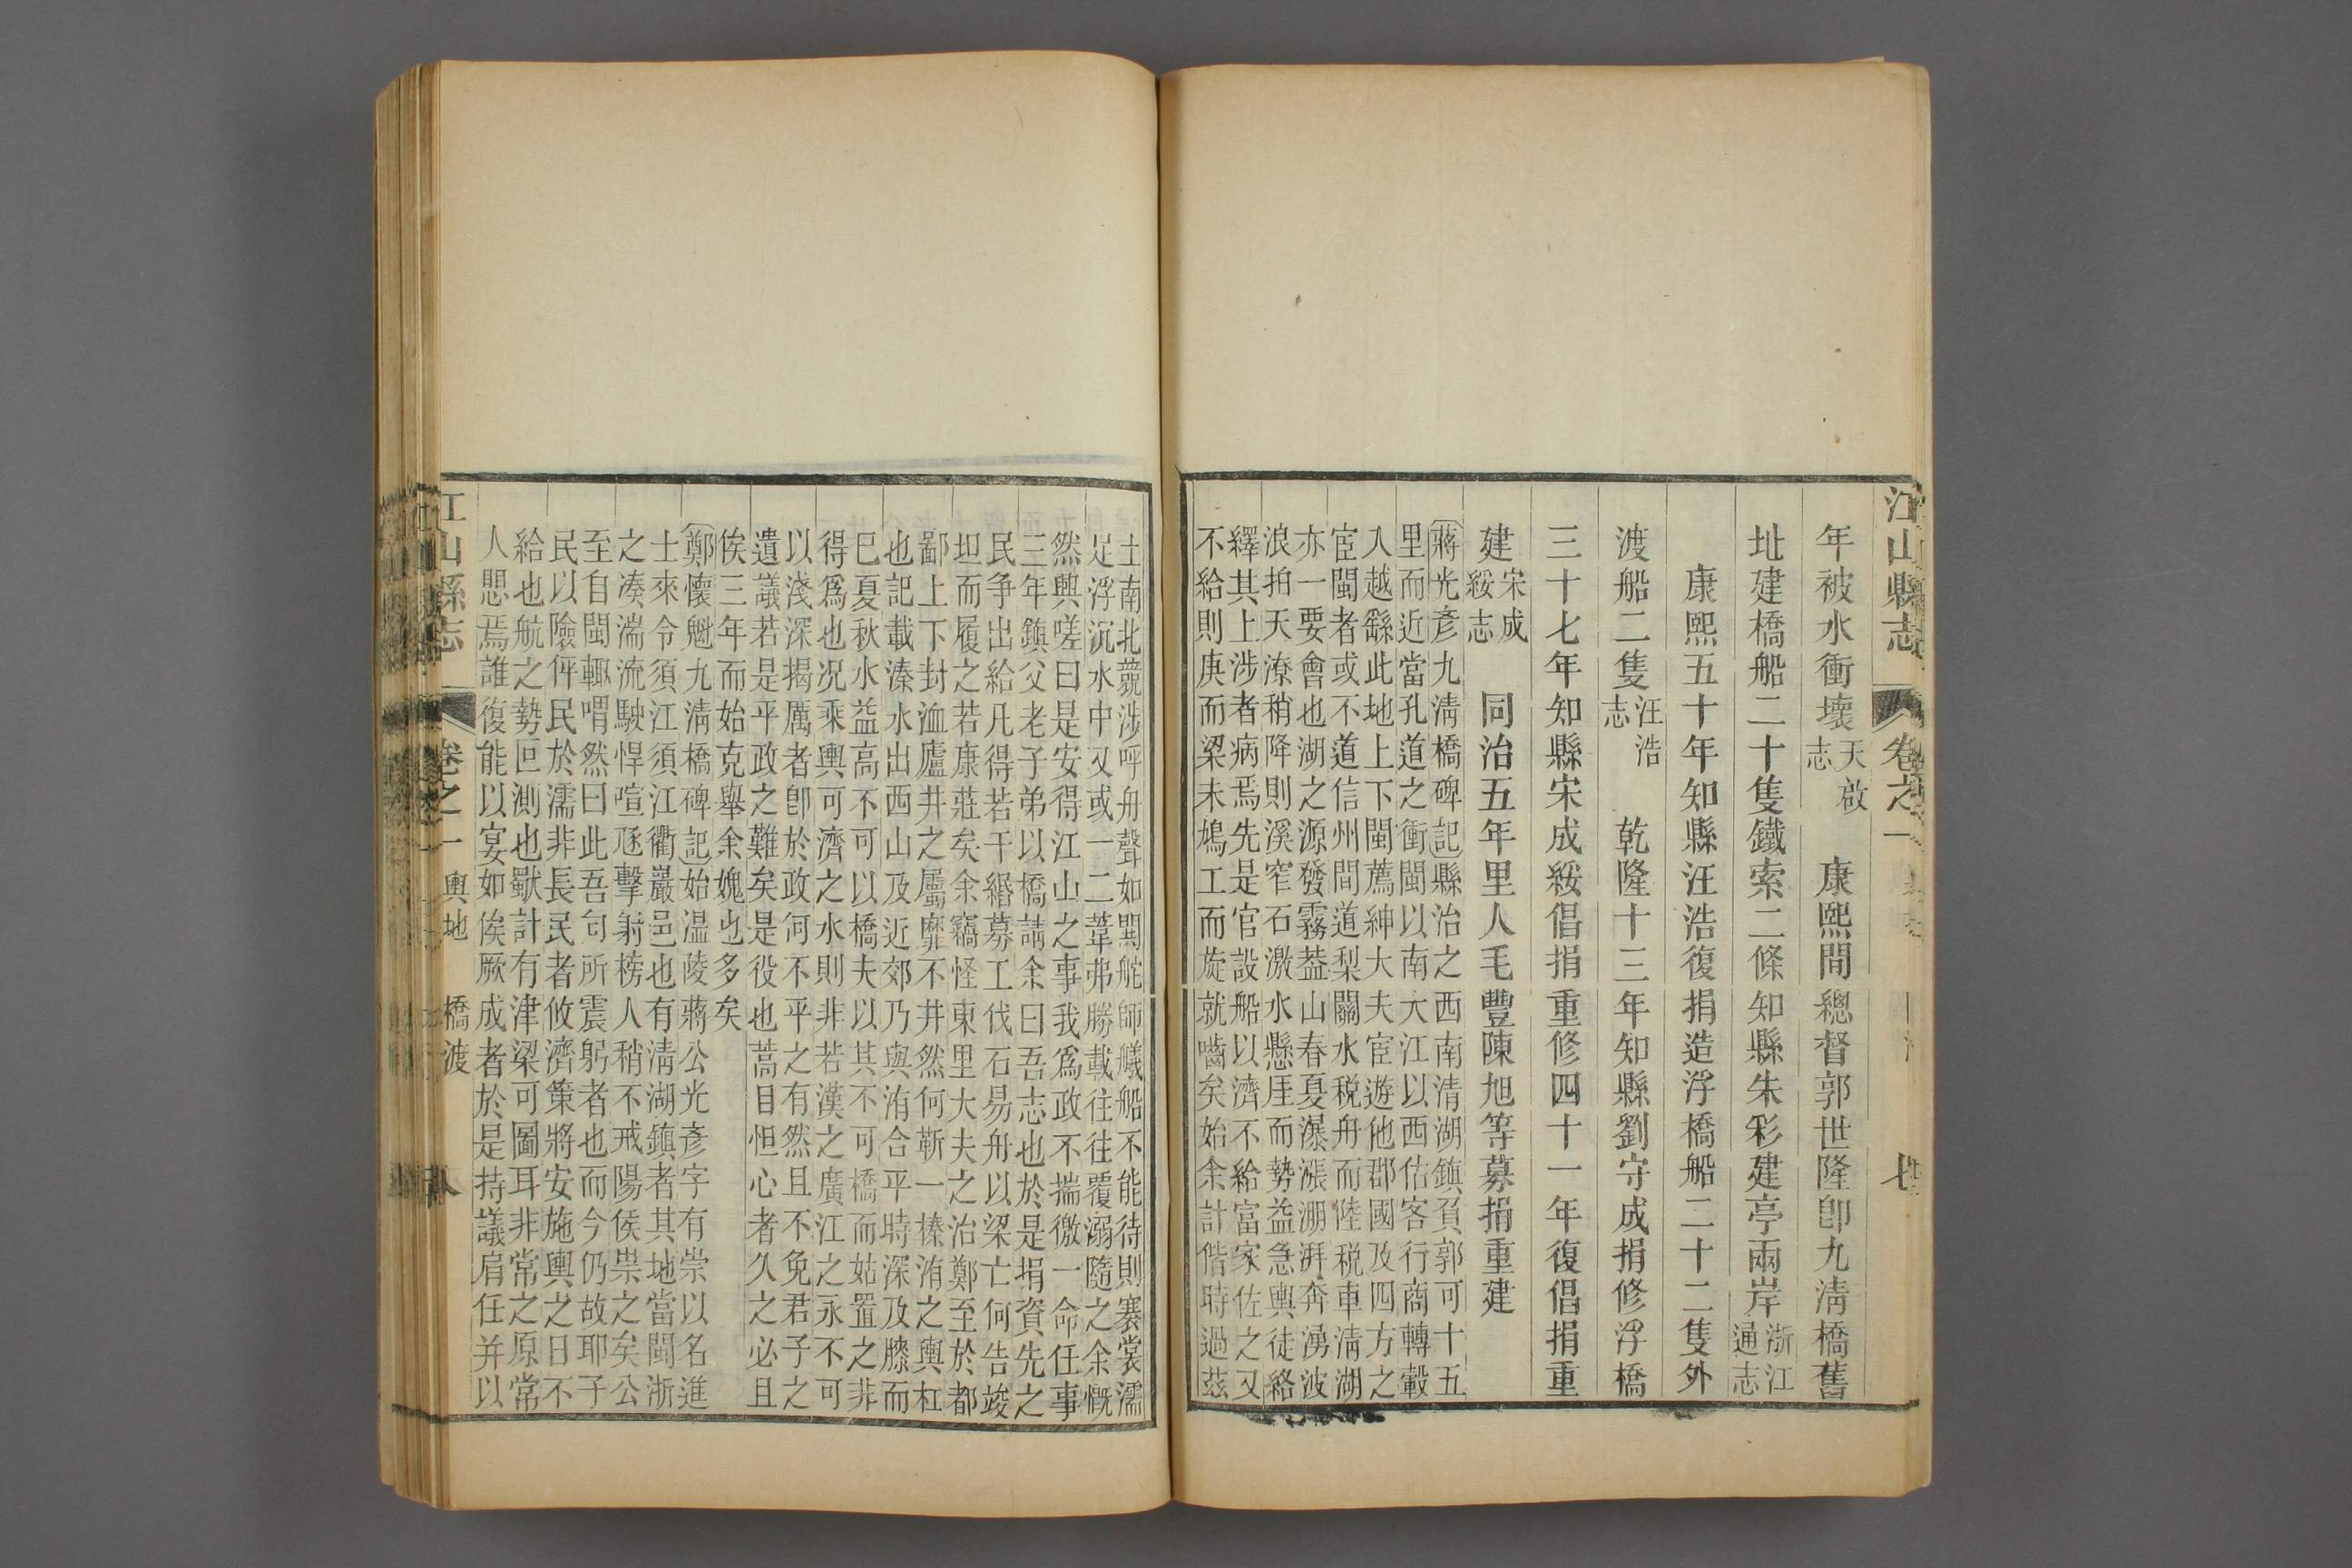 江山縣志 卷之一
年被水衝壞天啟志 康熙間總督郭世隆卽九淸橋舊
址建橋船二十隻鐵索二條知縣朱彩建亭兩岸浙江通志
康熙五十年知縣汪浩復捐造浮橋船二十二隻外
渡船二隻汪浩志 乾隆十三年知縣劉守成捐修浮橋
三十七年知縣宋成綏倡捐重修四十一年復倡捐重
建宋成綏志 同治五年里人毛豐陳旭等募捐重建
蔣光彥九淸橋碑記縣治之西南清湖鎮負郭可十五
里而近當孔道之衝閩以南大江以西估客行商轉轂
入越繇此地上下閩薦紳大夫宦遊他郡國及四方之
宦閩者或不道信州間道梨關水稅舟而陸稅車淸湖
亦一要會也湖之源發霧葢山春夏瀑漲淜湃奔湧波
浪拍天潦稍降則溪窄石激水懸厓而勢益急輿徒絡
繹其上涉者病焉先是官設船以濟不給富家佐之又
不給則庚而梁未鳩工而旋就嚙矣始余計偕時過茲
土南北競涉呼舟聲如鬨舵師艤船不能待則褰裳濡
足浮沉水中又或一二葦弗勝載往往覆溺隨之余慨
然興嗟曰是安得江山之事我為政不揣徼一命任事
三年鎮父老子弟以橋請余曰吾志也於是捐資先之
民争出給凡得若干緡募工伐石易舟以梁亡何告竣
坦而履之若康莊矣余竊怪東里大夫之治鄭至於都
鄙上下封洫廬井之屬靡不井然何靳一榛洧之輿杠
也記載溱水出西山及近郊乃與洧合平時深及膝而
巳夏秋水益高不可以橋夫以其不可橋而姑置之非
得爲也況乘輿可濟之水則非若漢之廣江之永不可
以淺深揭厲者卽於政何不平之有然且不免君子之
遺議若是平政之難矣是役也蒿目怛心者久之必且
俟三年而始克舉余媿也多矣
鄭懷魁九淸橋碑記始温陵蔣公光彥字有崇以名進
士來令須江須江衢巖邑也有清湖鎮者其地當閩浙
之湊湍流駛悍喧豗擊射榜人稍不戒陽侯祟之矣公
至自閩輒喟然曰此吾句所震躬者也而今仍故耶子
民以險伻民於濡非長民者攸濟策將安施輿之日不
給也航之勢叵測也猷計有津梁可圖耳非常之原常
人愳焉誰復能以宴如俟厥成者於是持議肩任并以
江山縣志 卷之一 輿地 橋渡 八